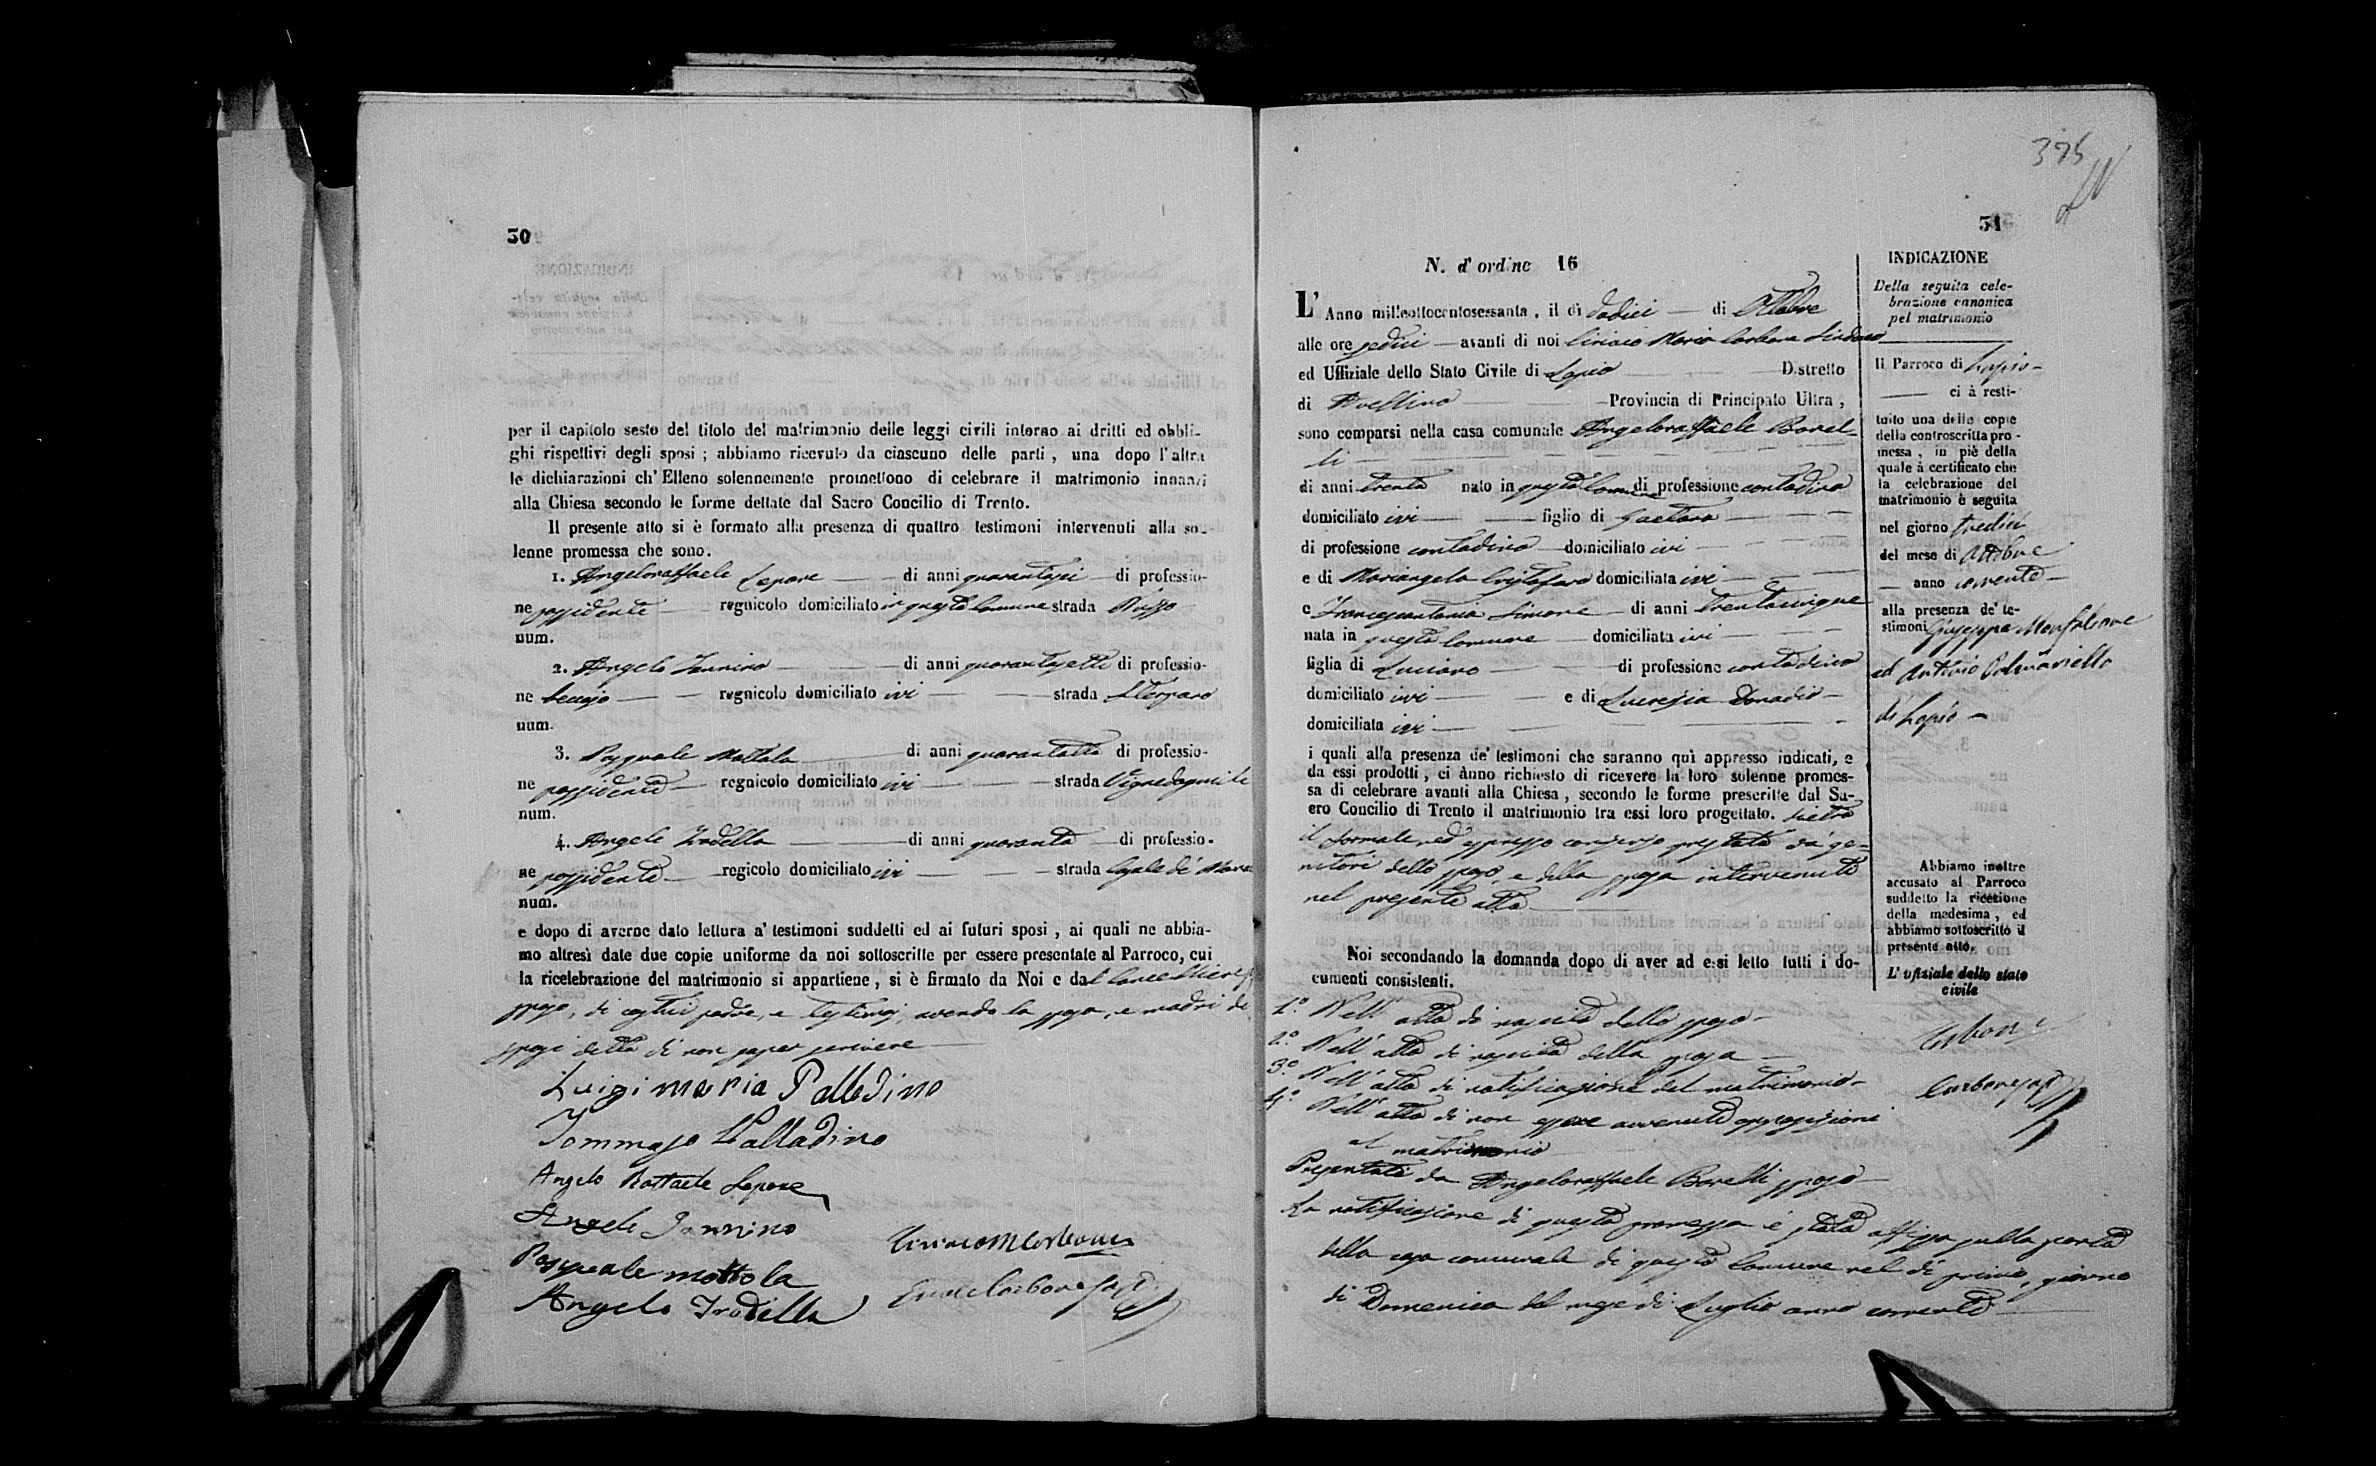 30
per il capitolo sesto del titolo del matrimonio delle leggi civili intorno ai dritti ed obbli-
ghi rispettivi degli sposi ; abbiamo ricevuto da ciascuno delle parti , una dopo l'altra
le dichiarazioni ch' Elleno solennemente promettono di celebrare il matrimonio innanzi
alla Chiesa secondo le forme dettate dal Sacro Concilio di Trento.
Il presente atto si è formato alla presenza di quattro testimoni intervenuti alla so-
lenne promessa che sono.
1. Angeloraffaele Lepore di anni quarantasei di professio-
ne possidente regnicolo domiciliato in questo Comune strada
num.
2. Angelo Iannino di anni quarantasette di professio-
ne beccajo regnicolo domiciliato ivi strada
num.
3. Pasquale Mottola di anni quarantotto di professio-
ne possidente regnicolo domiciliato ivi strada
num.
4. Angelo Trodella di anni quaranta di professio-
ne possidente regicolo domiciliato ivi strada
num.
e dopo di averne dato lettura a' testimoni suddetti ed ai futuri sposi , ai quali ne abbia-
mo altresì date due copie uniforme da noi sottoscritte per essere presentate al Parroco, cui
la ricelebrazione del matrimonio si appartiene , si è firmato da Noi e dal Cancelliere
sposo, di costui padre, e testimoj, avendo la sposa, e madri di
sposi detto di non saper scrivere
Luigi maria Palladino
Tommaso Palladino
Angelo Raffaele Lepore
Angelo Iannino
Pasquale mottola
Angelo Trodella
Ciriaco M Carbone
Carbone
375
31
N. d' ordine 16
L' Anno milleottocentosessanta , il dì dodici di Ottobre
alle ore sedici avanti di noi Ciriaco Maria Carbone Sindaco
ed Uffiziale dello Stato Civile di Lapio Distretto
di Avellino Provincia di Principato Ultra ,
sono comparsi nella casa comunale Angeloraffaele Borel-
li
di anni trenta nato in questo Comune di professione contadino
domiciliato ivi figlio di Gaetano
di professione contadino domiciliato ivi
e di Mariangela Cristofaro domiciliata ivi
e Francescantonia Simone di anni trentacinque
nata in questo Comune domiciliata ivi
figlia di Luciano di professione contadino
domiciliato ivi e di Lucrezia Donadio
domiciliata ivi
i quali alla presenza de' testimoni che saranno quì appresso indicati, e
da essi prodotti , ci ànno richiesto di ricevere la loro solenne promes-
sa di celebrare avanti alla Chiesa , secondo le forme prescritte dal Sa-
cro Concilio di Trento il matrimonio tra essi loro progettato. dietro
il formale, ed espresso consenso prestato da' ge-
nitori dello sposo, e della sposa intervenuti
nel presente atto
Noi secondando la domanda dopo di aver ad essi letto tutti i do-
cumenti consistenti.
1.° Nell' atto di nascita dello sposo
2.° Nell' atto di nascita della sposa
3.° Nell' atto di notificazione del matrimonio
4.° Nell' atto di non essere avvenute opposizioni
al matrimonio
Presentati da Angeloraffaele Borelli sposo
La notificazione di questa promessa è stata affissa sulla porta
della casa comunale di questo Comune nel dì primo, giorno
di Domenica del mese di Luglio anno corrente
INDICAZIONE
Della seguita cele-
brazione canonica
pel matrimonio
Il Parroco di Lapio
ci à resti-
tuito una delle copie
della controscritta pro-
messa , in piè della
quale à certificato che
la celebrazione del
matrimonio è seguita
nel giorno tredici
del mese di Ottobre
anno corrente
alla presenza de' te-
stimoni Giuseppe Monfalcone
ed Antonio Palmariello
di Lapio
Abbiamo inoltre
accusato al Parroco
suddetto la ricezione
della medesima , ed
abbiamo sottoscritto il
presente atto.
L' ufiziale dello stato
civile
Carbone
Carbone